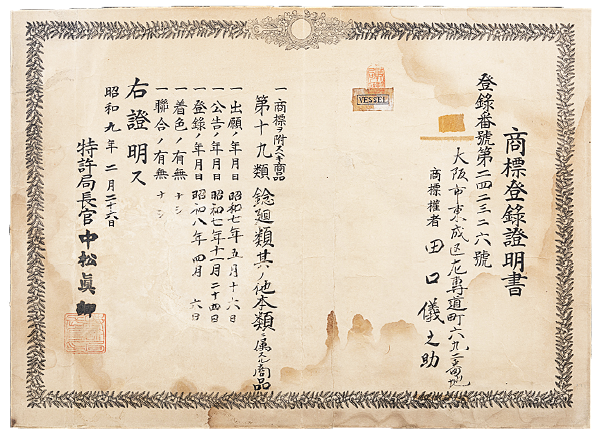 商標登錄證明書
登錄番號第二四二三二六號
大阪市東成區
商標權者 田口儀之助
VESSEL
一商標ヲ附スヘキ商品
第十九類 捻廻類其ノ他本類ニ屬スル商品
一出願ノ年月日 昭和七年五月十六日
一公告ノ年月日 昭和七年十一月二十四日
一登錄ノ年月日 昭和八年四月六日
一着色ノ有無 ナシ
一聯合ノ有無 ナシ
右證明ス
昭和九年二月二十六日
特許局長官 中松眞卿